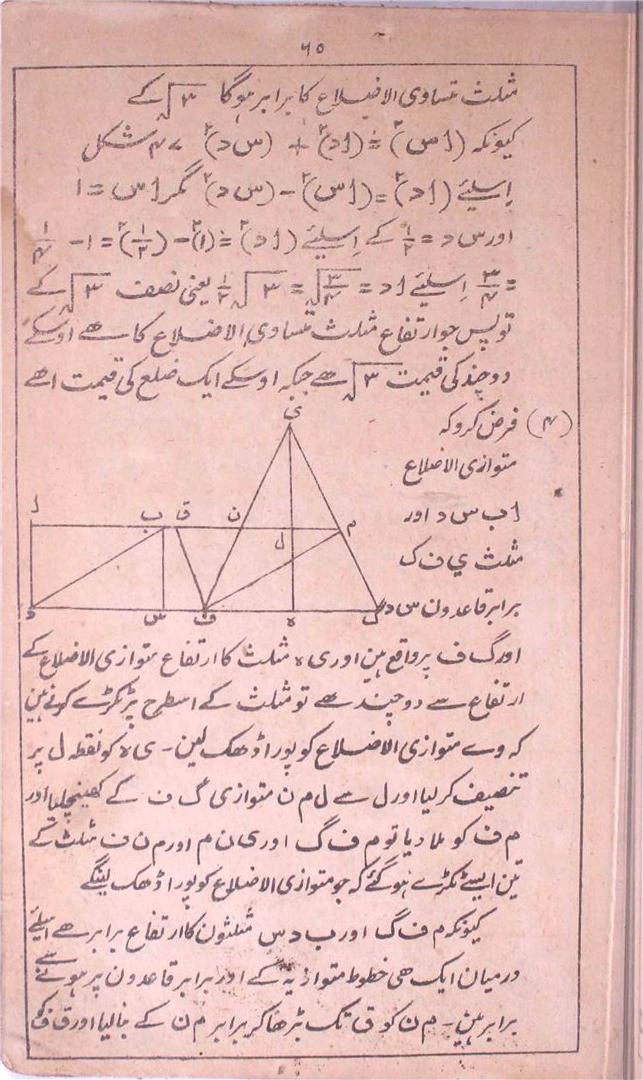 ٦٠
مثلث متساوی الاضلاع کا برابر ہوگا √٣ کے
کیونکہ (اس)٢ = (اد)٢ + (س د)٢ ٤٧ شکل
اِسلیئے (اد)٢ = (اس)٢ − (س د)٢ مگر اس = ١
اور س د = ١/٢ کے اِسلیئے (اد)٢ = (١)٢ − (١/٢)٢ = ١ − ١/٤
= ٣/٤ اِسلیئے اد = √٣/٤ = ١/٢ √٣ یعنی نصف √٣ کے
تو پس جو ارتفاع مثلث متساوی الاضلاع کا ھے اوسکے
دوچند کی قیمت √٣ ھے جبکہ اوسکے ایک ضلع کی قیمت ا ھے
(٤) فرض کرو کہ
متوازی الاضلاع
ا ب س د اور
مثلث ي ف ک
برابر قاعدون س د
ی
ا ب ق ن ل م
د س ف ہ گ
اور گ ف پر واقع ہین اور ی ہ مثلث کا ارتفاع متوازی الاضلاع کے
ارتفاع سے دوچند ھے تو مثلث کے اسطرح پر ٹکڑے کرنے ہین
کہ وے متوازی الاضلاع کو پورا ڈھک لین - ی ہ کو نقطہ ل پر
تنصیف کر لیا اور ل سے ل م ن متوازی گ ف کے کھینچلیا اور
م ف کو ملا دیا تو م ف گ اور ی ن م اور م ن ف مثلث کے
تین ایسے ٹکڑے ہو گئے کہ جو متوازی الاضلاع کو پورا ڈھک لینگے
کیونکہ م ف گ اور ب د س مثلثون کا ارتفاع برابر ھے اسلیئے
درمیان ایک ھی خطوط متوازیہ کے اور برابر قاعدون پر ہونے سے
برابر ہین - م ن کو ق تک بڑھا کر برابر م ن کے بنا لیا اور ق ف کو